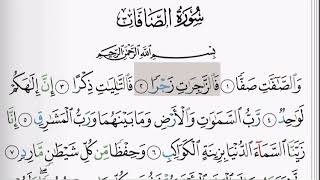 سُورَةُ الصَّافَّاتِ
بِسْمِ ٱللَّهِ ٱلرَّحْمَٰنِ ٱلرَّحِيمِ
وَٱلصَّٰٓفَّٰتِ صَفًّا ١ فَٱلزَّٰجِرَٰتِ زَجْرًا ٢ فَٱلتَّٰلِيَٰتِ ذِكْرًا ٣ إِنَّ إِلَٰهَكُمْ
لَوَٰحِدٌ ٤ رَّبُّ ٱلسَّمَٰوَٰتِ وَٱلْأَرْضِ وَمَا بَيْنَهُمَا وَرَبُّ ٱلْمَشَٰرِقِ ٥ إِنَّا
زَيَّنَّا ٱلسَّمَآءَ ٱلدُّنْيَا بِزِينَةٍ ٱلْكَوَاكِبِ ٦ وَحِفْظًا مِّن كُلِّ شَيْطَٰنٍ مَّارِدٍ ٧